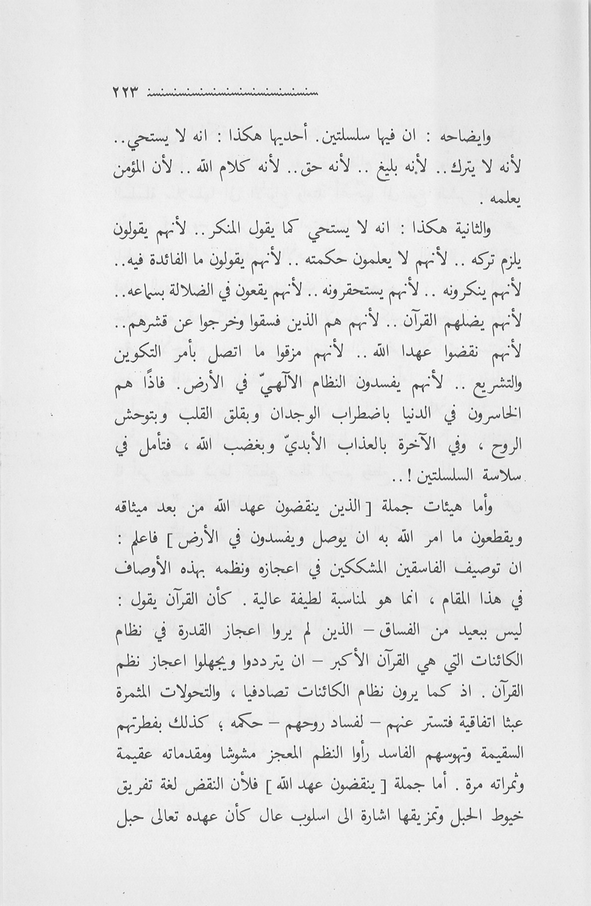 ٢٢٣
وايضاحه : ان فيها سلسلتين. أحديها هكذا : انه لا يستحي..
لأنه لا يترك.. لأنه بليغ .. لأنه حق.. لأنه كلام الله .. لأن المؤمن
يعلمه .
والثانية هكذا : انه لا يستحي كما يقول المنكر.. لأنهم يقولون
يلزم تركه .. لأنهم لا يعلمون حكمته .. لأنهم يقولون ما الفائدة فيه..
لأنهم ينكرونه .. لأنهم يستحقرونه .. لأنهم يقعون في الضلالة بسماعه..
لأنهم يضلهم القرآن .. لأنهم هم الذين فسقوا وخرجوا عن قشرهم..
لأنهم نقضوا عهدا الله .. لأنهم مزقوا ما اتصل بأمر التكوين
والتشريع .. لأنهم يفسدون النظام الآلهيّ في الأرض. فاذًا هم
الخاسرون في الدنيا باضطراب الوجدان وبقلق القلب وبتوحش
الروح ، وفي الآخرة بالعذاب الأبديّ وبغضب الله ، فتأمل في
سلاسة السلسلتين !..
وأما هيئات جملة [ الذين ينقضون عهد الله من بعد ميثاقه
ويقطعون ما امر الله به ان يوصل ويفسدون في الأرض ] فاعلم :
ان توصيف الفاسقين المشككين في اعجازه ونظمه بهذه الأوصاف
في هذا المقام ، انما هو لمناسبة لطيفة عالية . كأن القرآن يقول :
ليس ببعيد من الفساق – الذين لم يروا اعجاز القدرة في نظام
الكائنات التي هي القرآن الأكبر – ان يترددوا ويجهلوا اعجاز نظم
القرآن . اذ كما يرون نظام الكائنات تصادفيا ، والتحولات المثمرة
عبثا اتفاقية فتستر عنهم – لفساد روحهم – حكمه ؛ كذلك بفطرتهم
السقيمة وتهوسهم الفاسد رأوا النظم المعجز مشوشا ومقدماته عقيمة
وثمراته مرة . أما جملة [ ينقضون عهد الله ] فلأن النقض لغة تفريق
خيوط الحبل وتمزيقها اشارة الى اسلوب عال كأن عهده تعالى حبل